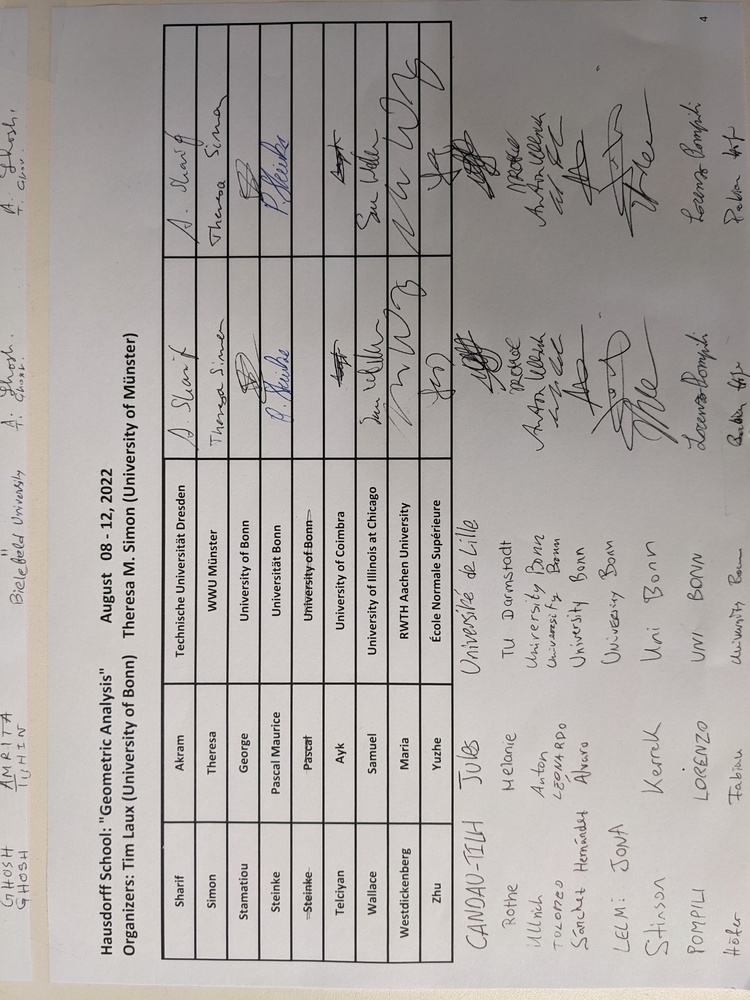 GHOSH AMRITA Bielefeld University A. Ghosh. A. Ghosh.
GHOSH TUHIN " T. Ghosh. T. Ghosh.
Hausdorff School: "Geometric Analysis" August 08 - 12, 2022
Organizers: Tim Laux (University of Bonn) Theresa M. Simon (University of Münster)
Sharif Akram Technische Universität Dresden A. Sharif A. Sharif
Simon Theresa WWU Münster Theresa Simon Theresa Simon
Stamatiou George University of Bonn
Steinke Pascal Maurice Universität Bonn P. Steinke P. Steinke
Steinke Pascal University of Bonn
Telciyan Ayk University of Coimbra
Wallace Samuel University of Illinois at Chicago
Westdickenberg Maria RWTH Aachen University
Zhu Yuzhe École Normale Supérieure
CANDAU-TILH Jules Université de Lille
Rothe Melanie TU Darmstadt MRothe MRothe
Ullrich Anton University Bonn Anton Ullrich Anton Ullrich
TOLOMEO LEONARDO University Bonn
Sánchez Hernández Álvaro University Bonn
LELMI JONA University Bonn
Stinson Kerrek Uni Bonn
POMPILI LORENZO UNI BONN Lorenzo Pompili Lorenzo Pompili
Höfer Fabian University Bonn Fabian Höfer Fabian Höfer
4